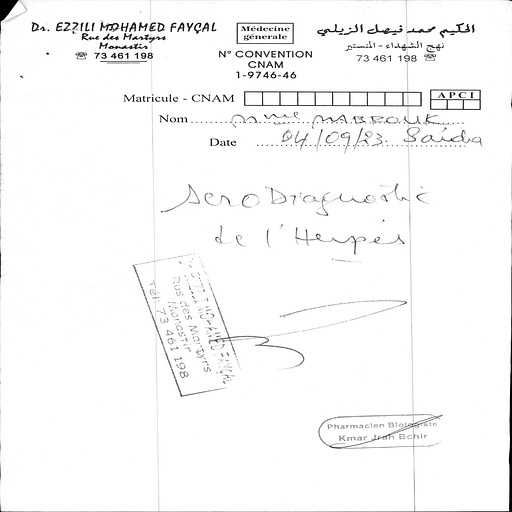 Dr. EZZILI MOHAMED FAYÇAL
Rue des Martyrs
Monastir
☎ 73 461 198
Médecine
génerale
N° CONVENTION
CNAM
1-9746-46
الحكيم محمد فيصل الزيلي
نهج الشهداء - المنستير
73 461 198 ☎
Matricule - CNAM
A P C I
Nom ... Mme MABROUK
Date 04/09/23. Saida
SeroDiagnostic
de l'Herpès
EZZILI MOHAMED FAYÇAL
Rue des Martyrs
Monastir
Tél: 73 461 198
Pharmacien Biologiste
Kmar Jrah Bchir